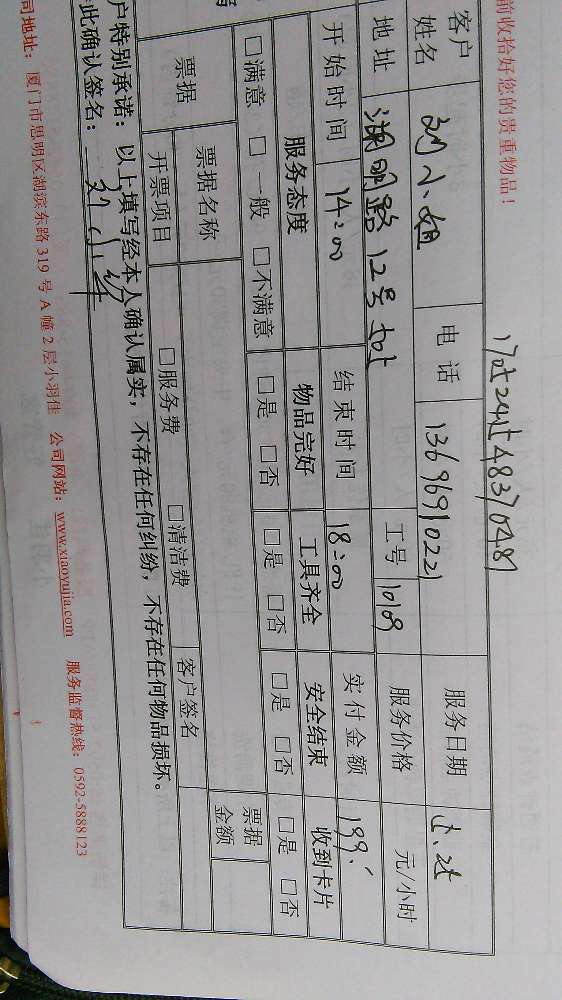 前收拾好您的贵重物品！
客户姓名 刘小姐 电话 13696910221 服务日期
地址 湖明路12号 工号 1089 服务价格 元/小时
开始时间 14:00 结束时间 18:00 实付金额 199.
服务态度 物品完好 工具齐全 安全结束 收到卡片
□满意 □一般 □不满意 □是 □否 □是 □否 □是 □否 □是 □否
票据 票据名称 票据金额
开票项目 □服务费 □清洁费 客户签名
户特别承诺：以上填写经本人确认属实，不存在任何纠纷，不存在任何物品损坏。
此确认签名：
司地址：厦门市思明区湖滨东路319号A幢2层小羽佳 公司网站：www.xiaoyujia.com 服务监督热线：0592-5888123